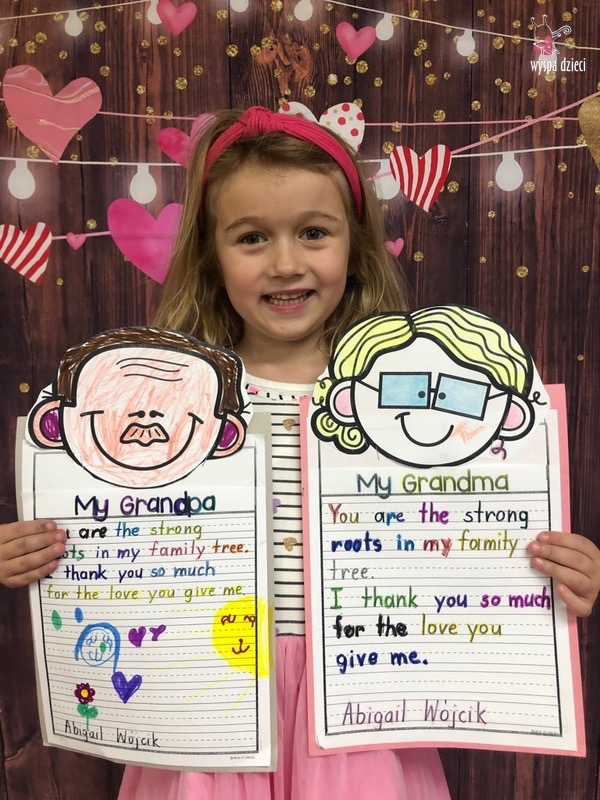 wyspa dzieci
My Grandpa
are the strong
in my family tree.
thank you so much
for the love you give me.
Abigail Wójcik
My Grandma
You are the strong
roots in my family
tree.
I thank you so much
for the love you
give me.
Abigail Wójcik